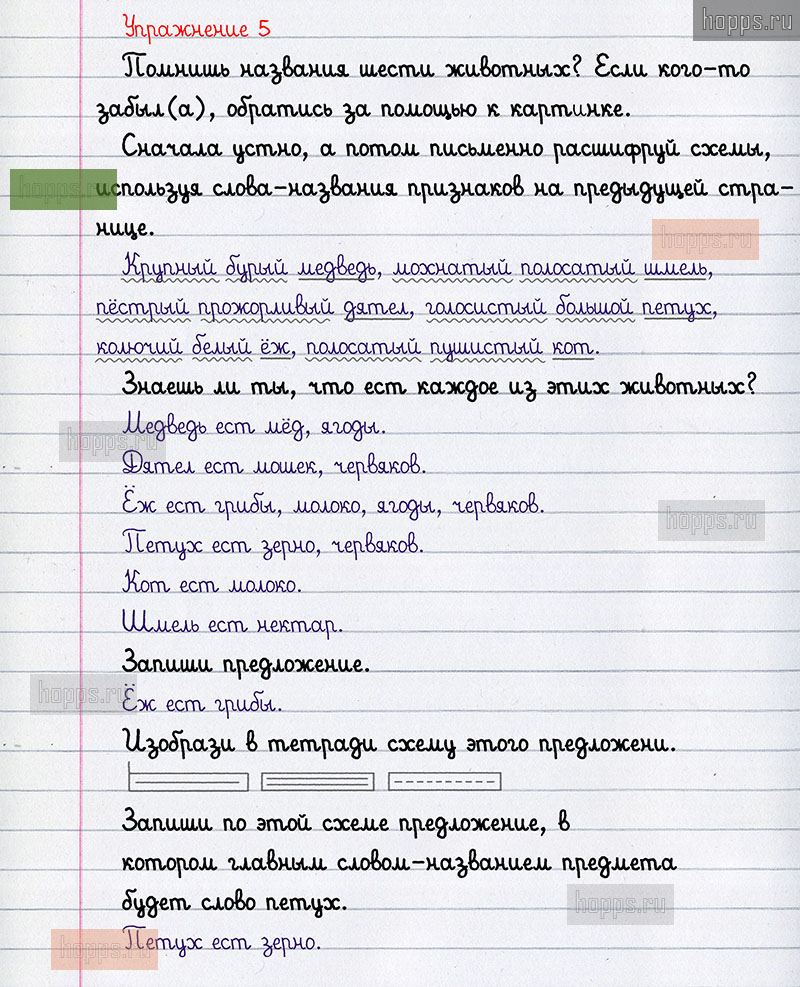 hopps.ru
Упражнение 5
Помнишь названия шести животных? Если кого-то
забыл(а), обратись за помощью к картинке.
Сначала устно, а потом письменно расшифруй схемы,
hopps.ru
используя слова-названия признаков на предыдущей стра-
нице.
hopps.ru
Крупный бурый медведь, мохнатый полосатый шмель,
пёстрый прожорливый дятел, голосистый большой петух,
колючий белый ёж, полосатый пушистый кот.
Знаешь ли ты, что ест каждое из этих животных?
Медведь ест мёд, ягоды.
hopps.ru
Дятел ест мошек, червяков.
Ёж ест грибы, молоко, ягоды, червяков.
hopps.ru
Петух ест зерно, червяков.
Кот ест молоко.
Шмель ест нектар.
Запиши предложение.
hopps.ru
Ёж ест грибы.
Изобрази в тетради схему этого предложени.
Запиши по этой схеме предложение, в
котором главным словом-названием предмета
будет слово петух.
hopps.ru
Петух ест зерно.
hopps.ru